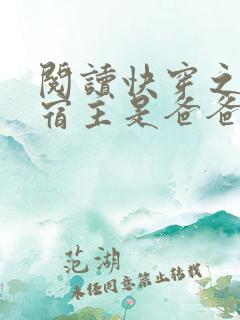 閱讀快穿之
宿主是爸爸
范湖
未經同意禁止转载